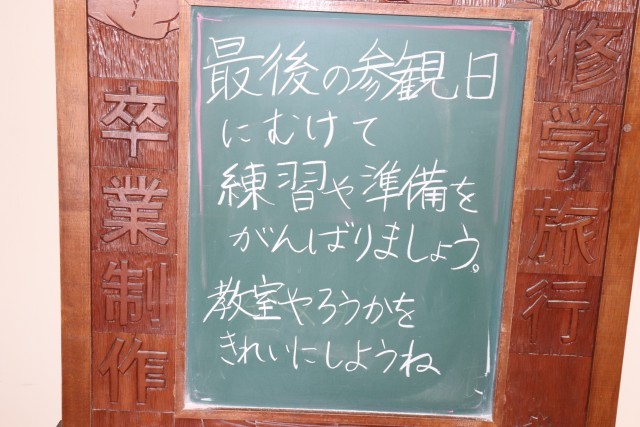 最後の参観日
にむけて
練習や準備を
がんばりましょう。
教室やろうかを
きれいにしようね
卒業制作
修学旅行